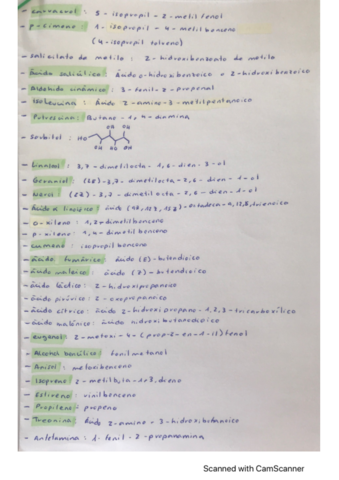 - carvacrol : 5 - isopropil - 2 - metil fenol
- p-cimeno : 1 - isopropil - 4 - metil benceno
(4-isopropil tolueno)
- Salicilato de metilo : 2-hidroxibenzoato de metilo
- Ácido salicílico : Ácido 2-hidroxibenzoico
- Aldehído cinámico : 3-fenil-2-propenal
- Isoleucina : Ácido 2-amino-3-metilpentanoico
- Putrescina : Butano-1,4-diamina
- Sorbitol : HO OH OH OH OH OH
- Linalol : 3,7-dimetilocta-1,6-dien-3-ol
- Geraniol : (2E)-3,7-dimetilocta-2,6-dien-1-ol
- Nerol : (2Z)-3,7-dimetilocta-2,6-dien-1-ol
- o-xileno : 1,2-dimetilbenceno
- p-xileno : 1,4-dimetil benceno
- cumeno : isopropilbenceno
- ácido fumárico : ácido (E)-butendioico
- ácido maleico : ácido (Z)-butendioico
- ácido láctico : 2-hidroxipropanoico
- ácido pirúvico : 2-oxopropanoico
- ácido cítrico : ácido 2-hidroxipropano-1,2,3-tricarboxílico
- ácido málico : ácido hidroxibutanodioico
- eugenol : 2-metoxi-4-(prop-2-en-1-il)fenol
- Alcohol bencílico : fenilmetanol
- Anisol : metoxibenceno
- Isopreno : 2-metilbuta-1,3,dieno
- Estireno : vinilbenceno
- Propileno : propeno
- Treonina : Ácido 2-amino-3-hidroxibutanoico
- Anfetamina : 1-fenil-2-propanamina
Scanned with CamScanner